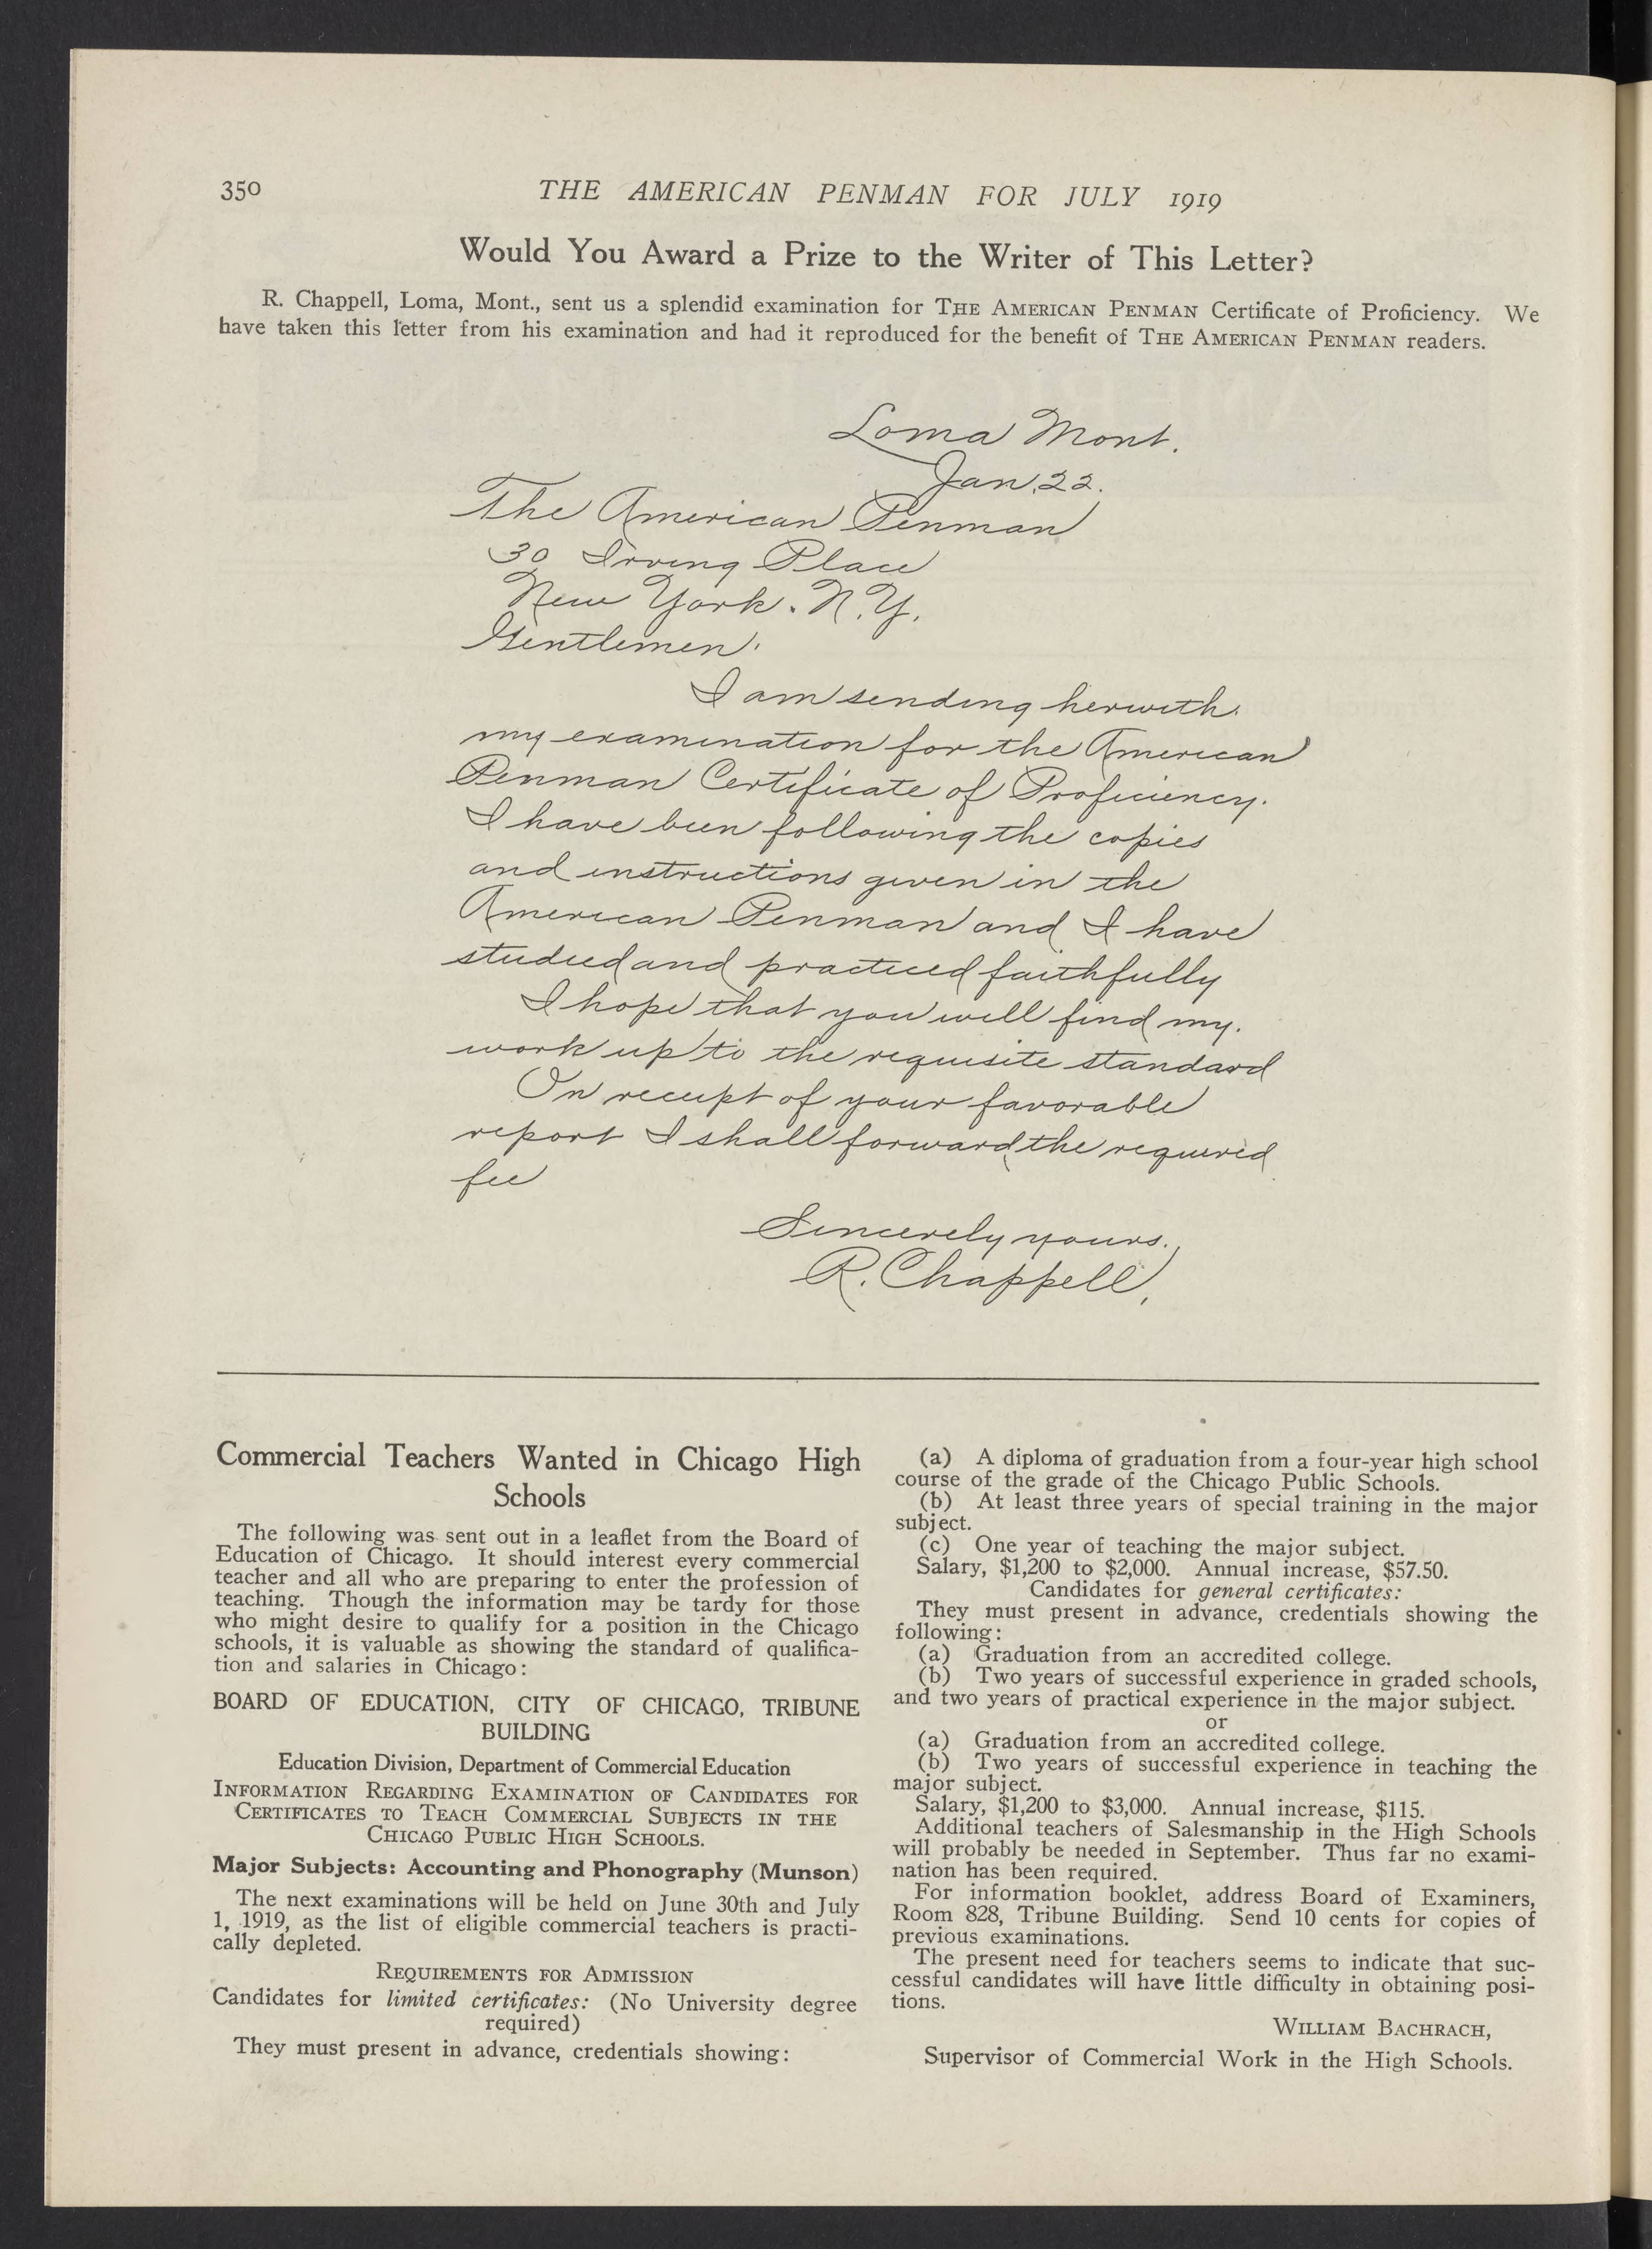 350
THE AMERICAN PENMAN FOR JULY 1919
Would You Award a Prize to the Writer of This Letter?
R. Chappell, Loma, Mont., sent us a splendid examination for THE AMERICAN PENMAN Certificate of Proficiency. We
have taken this letter from his examination and had it reproduced for the benefit of THE AMERICAN PENMAN readers.
Loma Mont.
Jan. 22.
The American Penman
30 Irving Place
New York. N.Y.
Gentlemen:
I am sending herwith
my examination for the American
Penman Certificate of Proficiency.
I have been following the copies
and instructions given in the
American Penman and I have
studied and practiced faithfully
I hope that you will find my.
work up to the requisite standard
On receipt of your favorable
report I shall forward the required
fee
Sincerely yours.,
R. Chappell,
Commercial Teachers Wanted in Chicago High
Schools
The following was sent out in a leaflet from the Board of
Education of Chicago. It should interest every commercial
teacher and all who are preparing to enter the profession of
teaching. Though the information may be tardy for those
who might desire to qualify for a position in the Chicago
schools, it is valuable as showing the standard of qualifica-
tion and salaries in Chicago:
BOARD OF EDUCATION, CITY OF CHICAGO, TRIBUNE
BUILDING
Education Division, Department of Commercial Education
INFORMATION REGARDING EXAMINATION OF CANDIDATES FOR
CERTIFICATES TO TEACH COMMERCIAL SUBJECTS IN THE
CHICAGO PUBLIC HIGH SCHOOLS.
Major Subjects: Accounting and Phonography (Munson)
The next examinations will be held on June 30th and July
1, 1919, as the list of eligible commercial teachers is practi-
cally depleted.
REQUIREMENTS FOR ADMISSION
Candidates for limited certificates: (No University degree
required)
They must present in advance, credentials showing:
(a) A diploma of graduation from a four-year high school
course of the grade of the Chicago Public Schools.
(b) At least three years of special training in the major
subject.
(c) One year of teaching the major subject.
Salary, $1,200 to $2,000. Annual increase, $57.50.
Candidates for general certificates:
They must present in advance, credentials showing the
following:
(a) Graduation from an accredited college.
(b) Two years of successful experience in graded schools,
and two years of practical experience in the major subject.
or
(a) Graduation from an accredited college.
(b) Two years of successful experience in teaching the
major subject.
Salary, $1,200 to $3,000. Annual increase, $115.
Additional teachers of Salesmanship in the High Schools
will probably be needed in September. Thus far no exami-
nation has been required.
For information booklet, address Board of Examiners,
Room 828, Tribune Building. Send 10 cents for copies of
previous examinations.
The present need for teachers seems to indicate that suc-
cessful candidates will have little difficulty in obtaining posi-
tions.
WILLIAM BACHRACH,
Supervisor of Commercial Work in the High Schools.